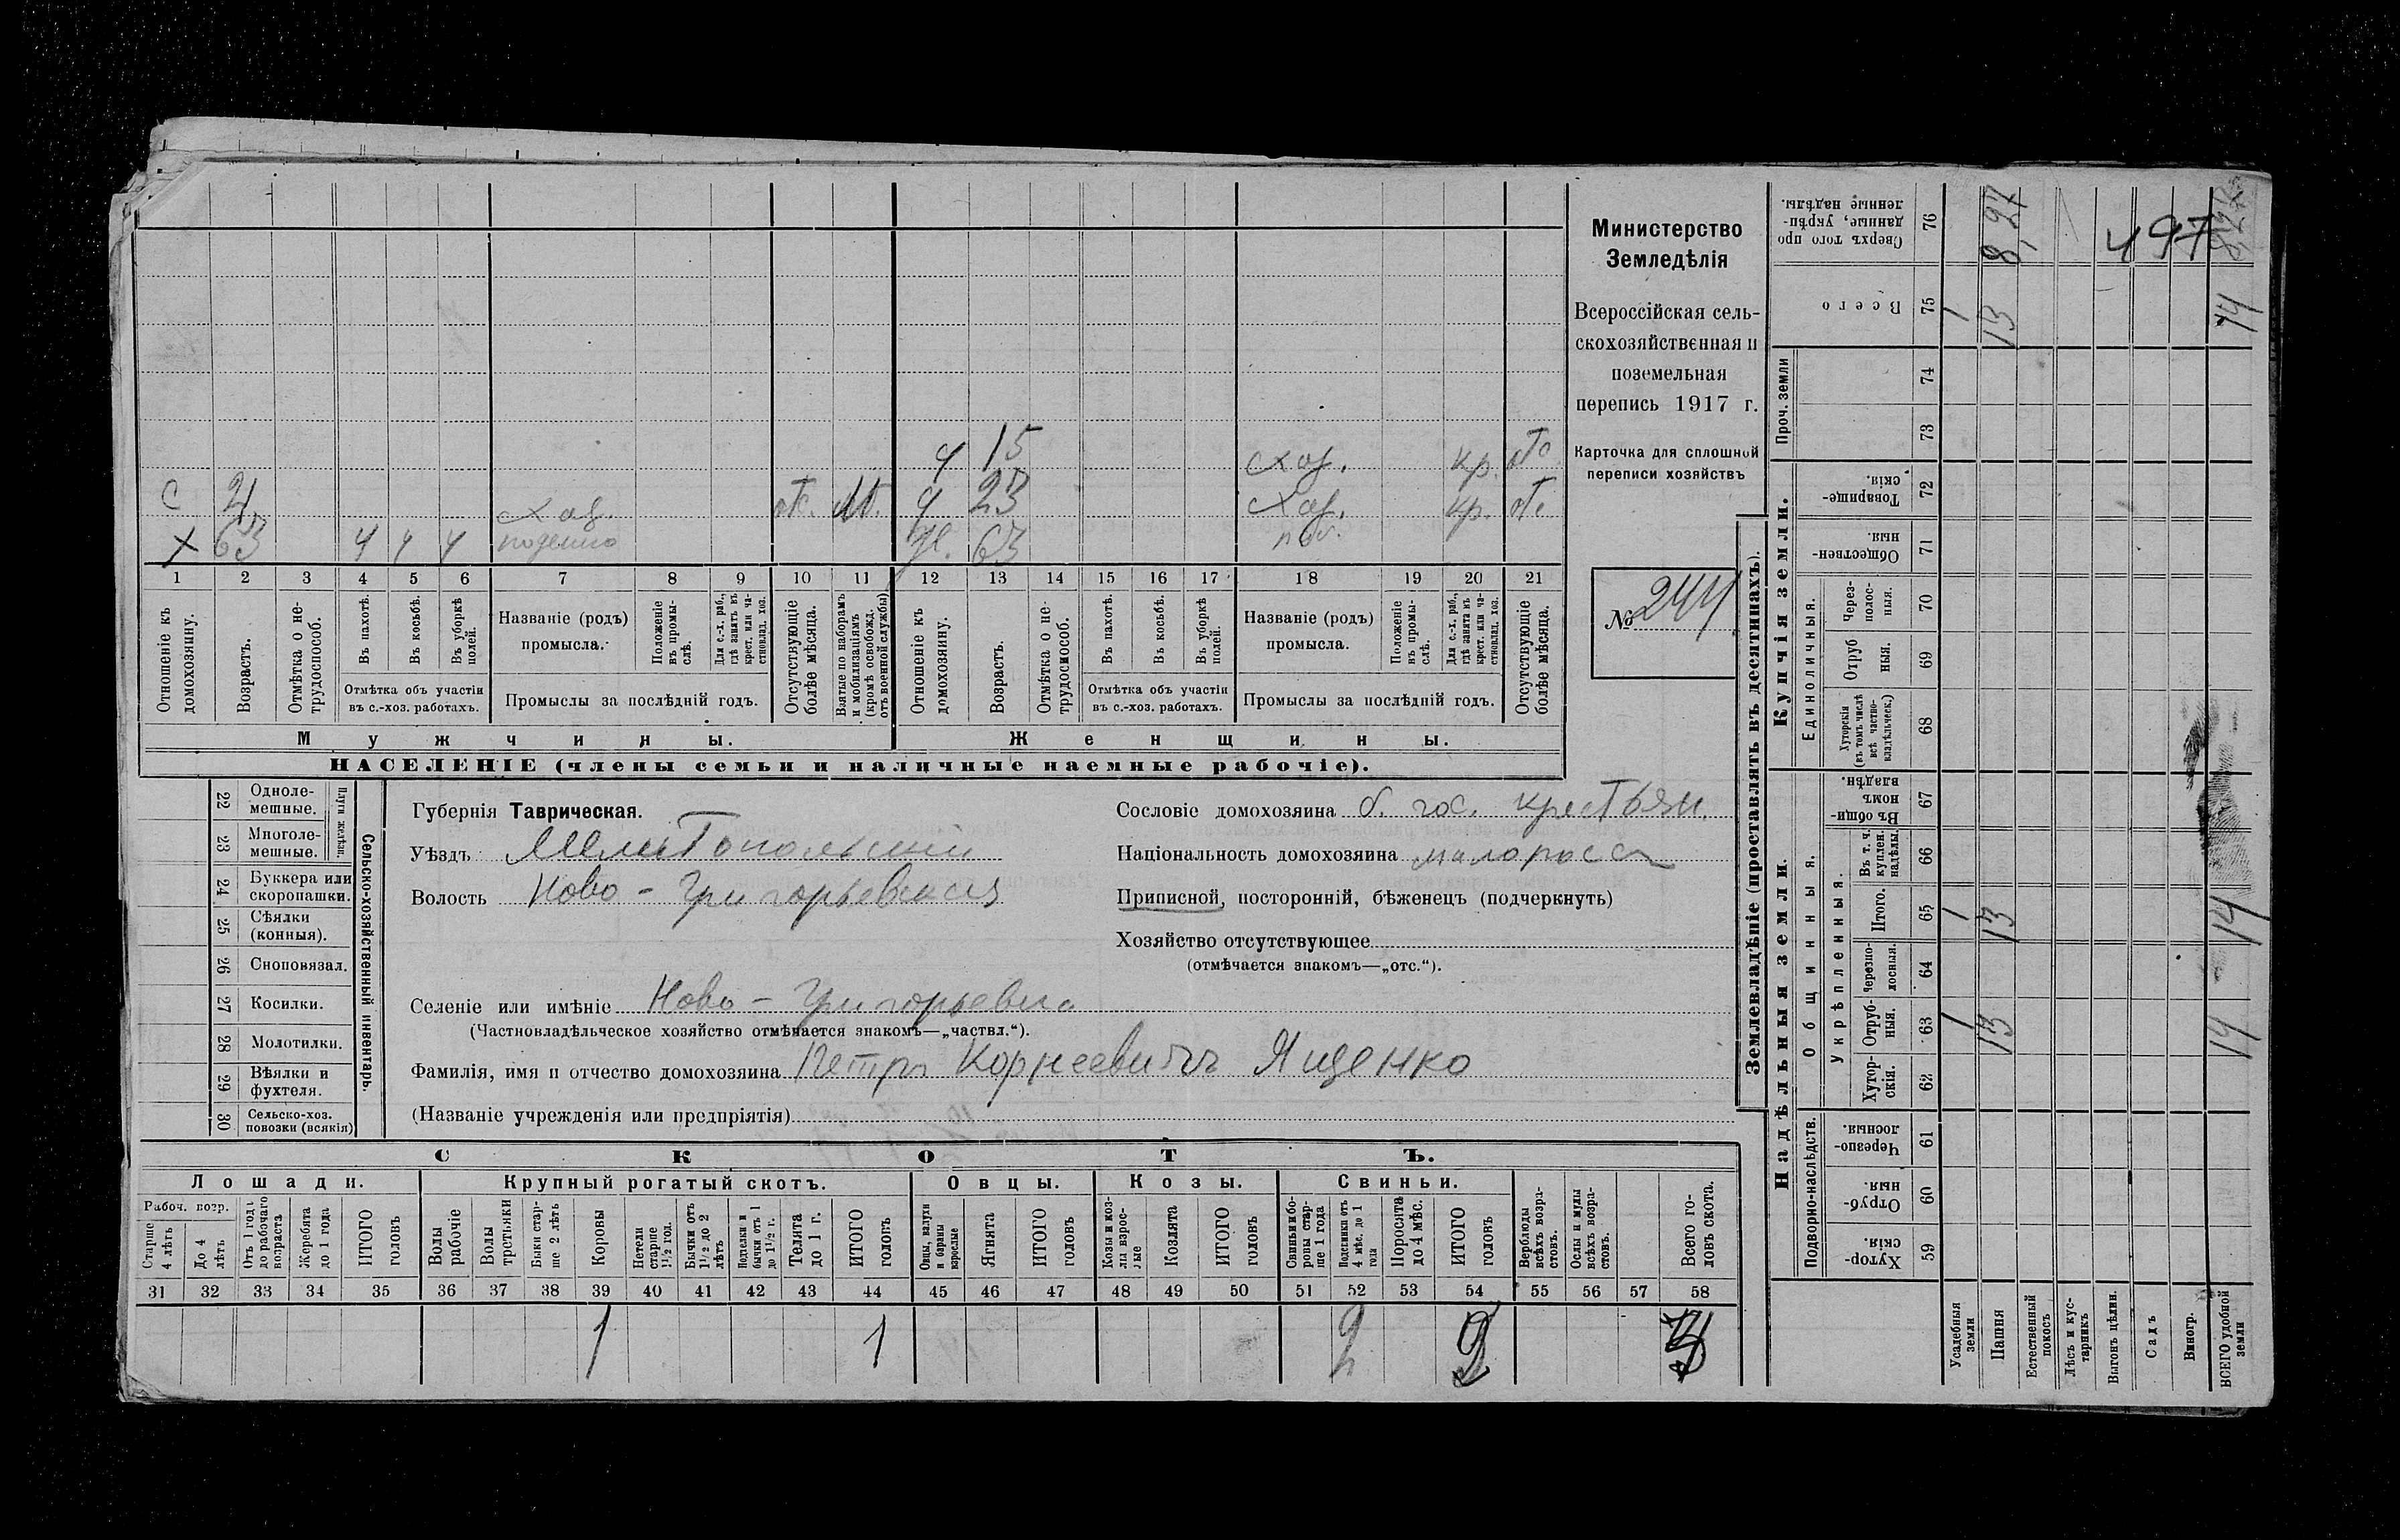 Министерство
Земледѣлія
Всероссійская сель-
скохозяйственная и
поземельная
перепись 1917 г.
Карточка для сплошной
переписи хозяйствъ
№ 244
ч 15 хоз. кр. отс
с 21 хоз. отс. ч 23 хоз. кр. отс
х 63 ч ч ч поденно ж. 63
1 2 3 4 5 6 7 8 9 10 11 12 13 14 15 16 17 18 19 20 21
Отношеніе къ домохозяину.
Возрастъ.
Отмѣтка о не-трудоспособ.
Въ пахотѣ.
Въ косьбѣ.
Въ уборкѣ полей.
Отмѣтка объ участіи въ с.-хоз. работахъ.
Названіе (родъ) промысла.
Положеніе въ промы-слѣ.
Для с.-х. раб., гдѣ занятъ въ крест. или ча-стновлад. хоз.
Промыслы за послѣдній годъ.
Отсутствующіе болѣе мѣсяца.
Взятые по наборамъ и мобилизаціямъ (кромѣ освобожд. отъ военной службы)
Отношеніе къ домохозяину.
Возрастъ.
Отмѣтка о не-трудоспособ.
Въ пахотѣ.
Въ косьбѣ.
Въ уборкѣ полей.
Отмѣтка объ участіи въ с.-хоз. работахъ.
Названіе (родъ) промысла.
Положеніе въ промы-слѣ.
Для с.-х. раб., гдѣ занята въ крест. или ча-стновлад. хоз.
Промыслы за послѣдній годъ.
Отсутствующіе болѣе мѣсяца.
Мужчины. Женщины.
НАСЕЛЕНІЕ (члены семьи и наличные наемные рабочіе).
22 Одноле-мешные.
23 Многоле-мешные.
Плуги желѣзн.
24 Буккера или скоропашки.
25 Сѣялки (конныя).
26 Сноповязал.
27 Косилки.
28 Молотилки.
29 Вѣялки и фухтеля.
30 Сельско-хоз. повозки (всякія)
Сельско-хозяйственный инвентарь.
Губернія Таврическая.
Уѣздъ Мелитопольскій
Волость Ново-Григорьевская
Селеніе или имѣніе Ново-Григорьевка
(Частновладѣльческое хозяйство отмѣчается знакомъ—„частвл.“).
Фамилія, имя и отчество домохозяина Петръ Корнеевичъ Ященко
(Названіе учрежденія или предпріятія)
Сословіе домохозяина б. гос. крестьян.
Національность домохозяина малоросс
Приписной, посторонній, бѣженецъ (подчеркнуть)
Хозяйство отсутствующее
(отмѣчается знакомъ—„отс.“).
СКОТЪ.
Лошади. Крупный рогатый скотъ. Овцы. Козы. Свиньи.
Рабоч. возр.
Старше 4 лѣтъ
До 4 лѣтъ
Отъ 1 года до рабочаго возраста
Жеребята до 1 года
ИТОГО головъ
Волы рабочіе
Волы третьяки
Быки стар-ше 2 лѣтъ
Коровы
Нетели старше 1½ год.
Бычки отъ 1½ до 2 лѣтъ
Подтелки и бычки отъ 1 до 1½ г.
Телята до 1 г.
ИТОГО головъ
Овцы, валухи и бараны взрослые
Ягнята
ИТОГО головъ
Козы и коз-лы взрос-лые
Козлята
ИТОГО головъ
Свиньи и бо-ровы стар-ше 1 года
Подсвинки отъ 4 мѣс. до 1 года
Поросята до 4 мѣс.
ИТОГО головъ
Верблюды всѣхъ возра-стовъ.
Ослы и мулы всѣхъ возра-стовъ.
Всего го-ловъ скота.
31 32 33 34 35 36 37 38 39 40 41 42 43 44 45 46 47 48 49 50 51 52 53 54 55 56 57 58
1 1 2 2 3
Землевладѣніе (проставлять въ десятинахъ).
Надѣльныя земли. Купчія земли.
Подворно-наслѣдств.
Общинныя.
Укрѣпленныя.
Единоличныя.
Проч. земли
Сверхъ того про данные, укрѣп-ленные надѣлы. 76 8,27 497
Всего 75 1 13 14
74
73
Товарище-скія. 72
Обществен-ныя. 71
Через-полос-ныя. 70
Отруб ныя. 69
Хуторскія (въ томъ числѣ всѣ частно-владѣльческ.) 68
Въ общи-номъ владѣн. 67
Въ т. ч. куплен. надѣлы. 66
Итого. 65 1 13 14
Черезпо-лосныя. 64
Отруб-ныя. 63 1 13 14
Хутор-скія. 62
Черезпо-лосныя. 61
Отруб-ныя. 60
Хутор-скія. 59
Усадебныя земли
Пашня
Естественный покосъ
Лѣсъ и кус-тарникъ
Выгонъ цѣлин.
Садъ
Виногр.
ВСЕГО удобной земли